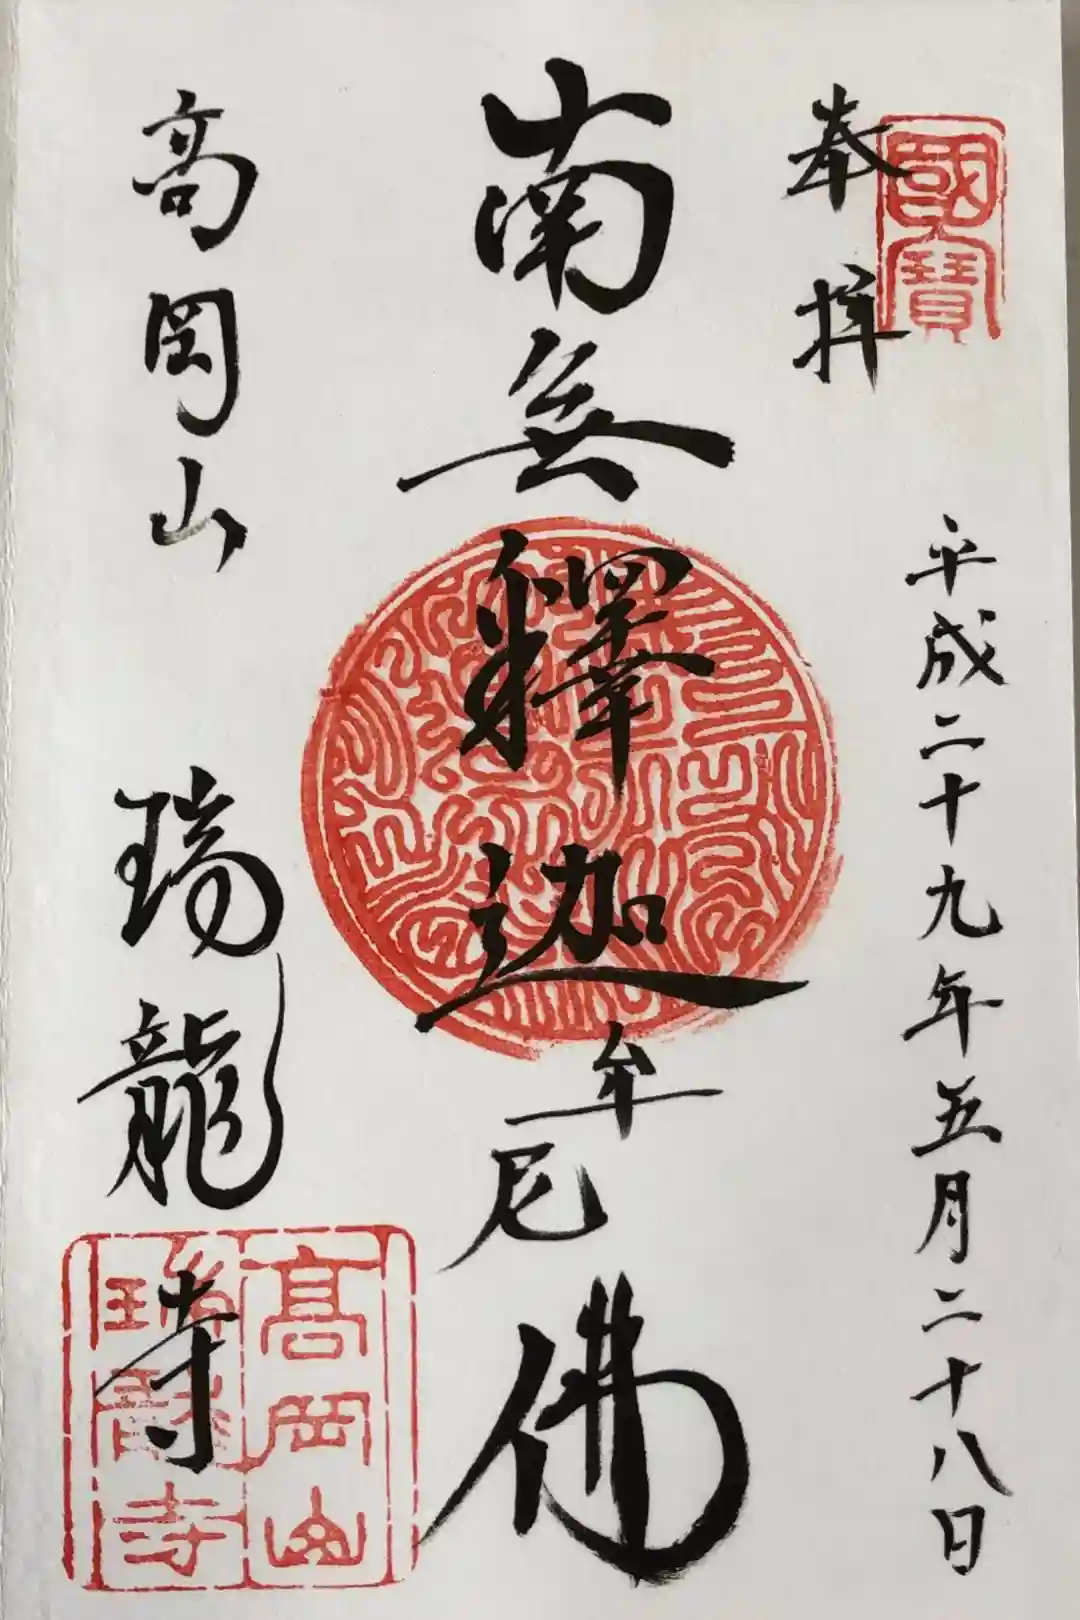 國寶
奉拝
平成二十九年五月二十八日
南無釋迦牟尼佛
高岡山 瑞龍寺
高岡山
瑞龍寺